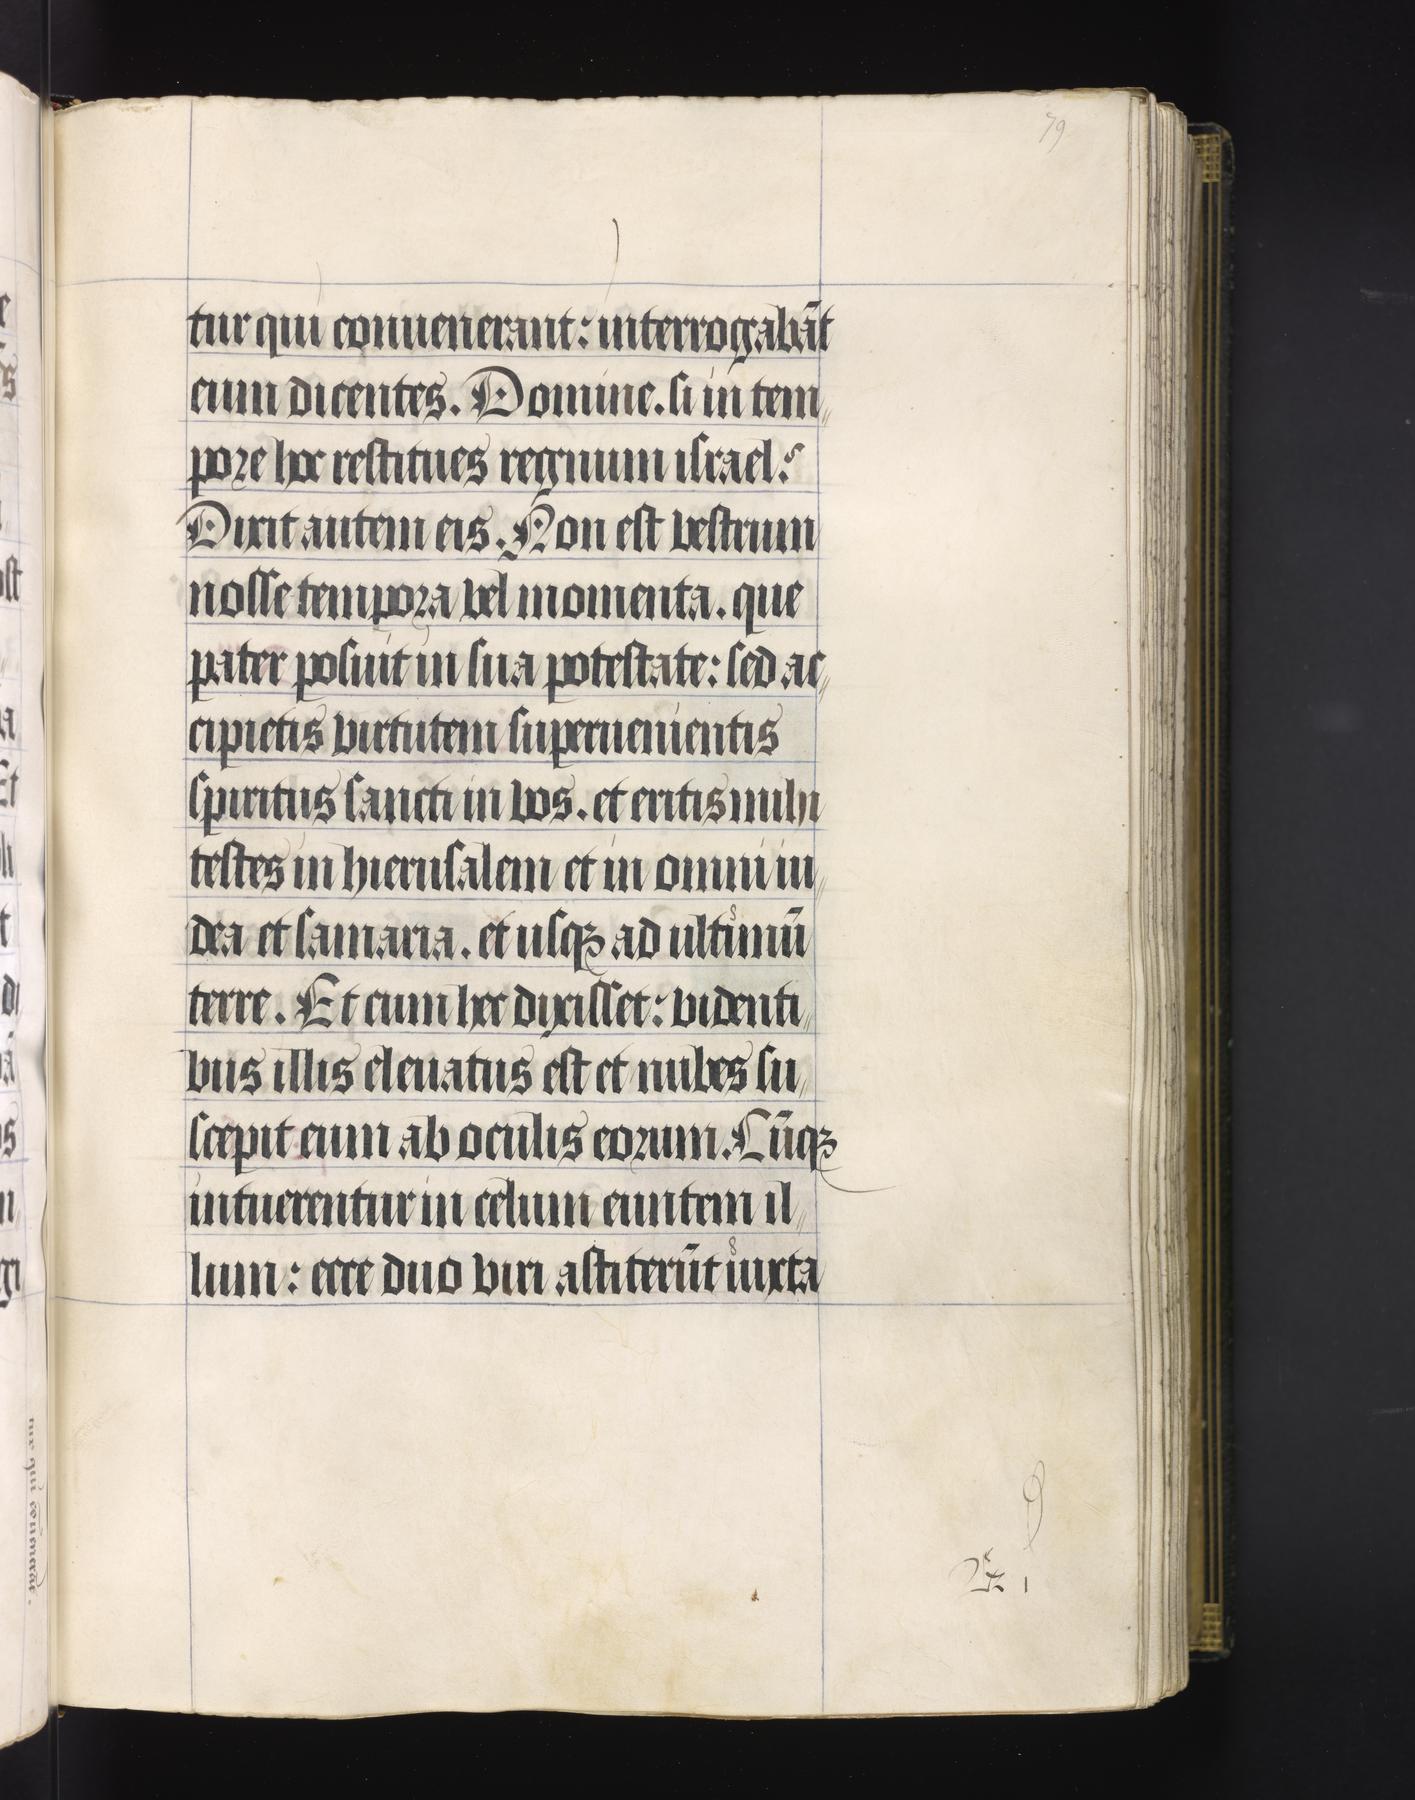 79
tur qui conuenerant: interrogabāt
eum dicentes. Domine. si in tem
pore hoc restitues regnum israel?
Dixit autem eis. Non est vestrum
nosse tempora vel momenta. que
pater posuit in sua potestate: sed ac
cipietis virtutem superuenientis
spiritus sancti in vos. et eritis mihi
testes in hierusalem et in omni iu
dea et samaria. et usqꝫ ad ultimū
terre. Et cum hec dixisset: videnti
bus illis eleuatus est et nubes su
scepit eum ab oculis eorum. Cūqꝫ
intuerentur in celum euntem il
lum: ecce duo viri astiterūt iuxta